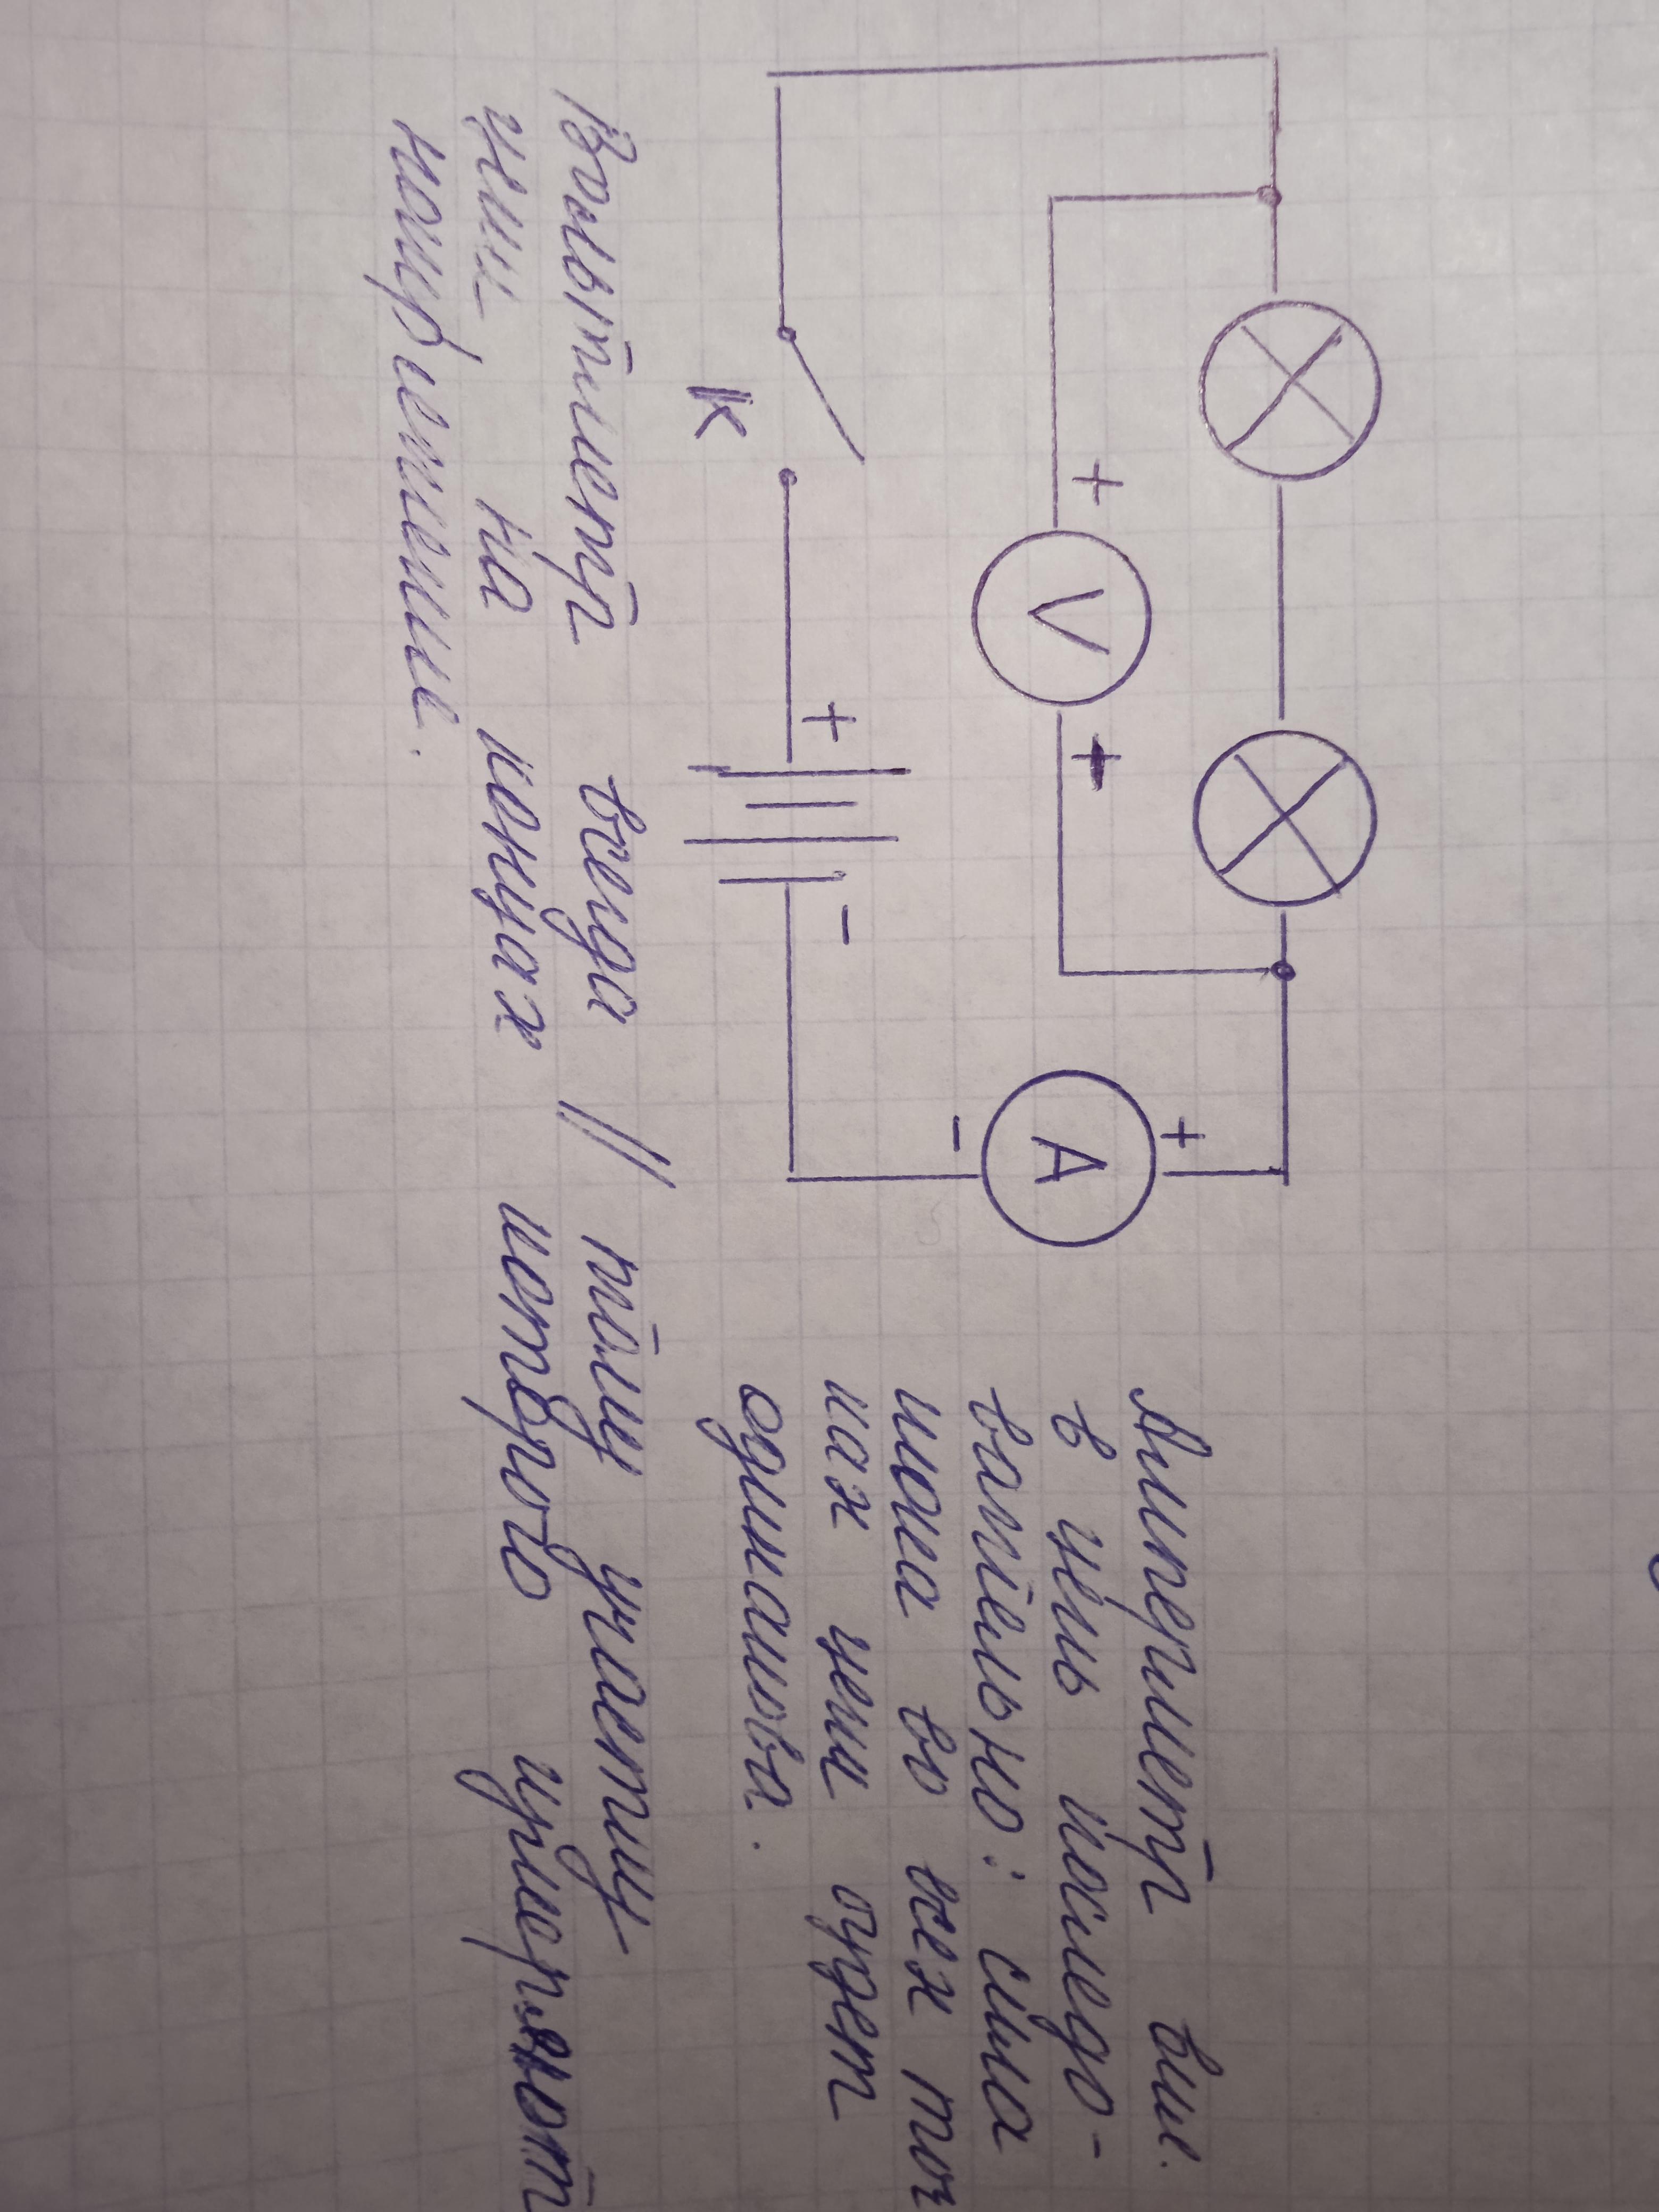 + V +
+ A -
К + -
Амперметр вкл.
в цепь последо-
вательно: сила
тока во всех точ
ках цепи будет
одинакова.
Вольтметр всегда || тому участку
цепи на концах которого измеряют
напряжение.